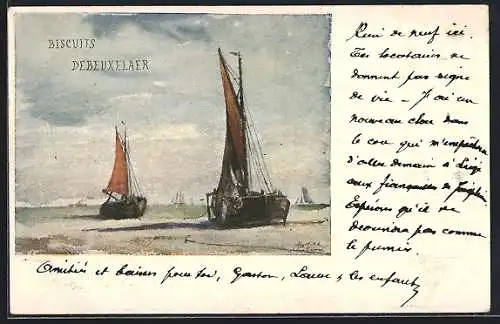 BISCUITS
DEBEUKELAER
Rien de neuf ici.
Tes locataires ne
donnent pas signe
de vie – J'ai un
nouveau clou dans
le cou qui m'empêchera
d'aller demain à Liège
aux fiançailles de
Espérons qu'il ne
deviendra pas comme
le premier.
Amitiés et baisers pour toi, Gaston, Laure & les enfants